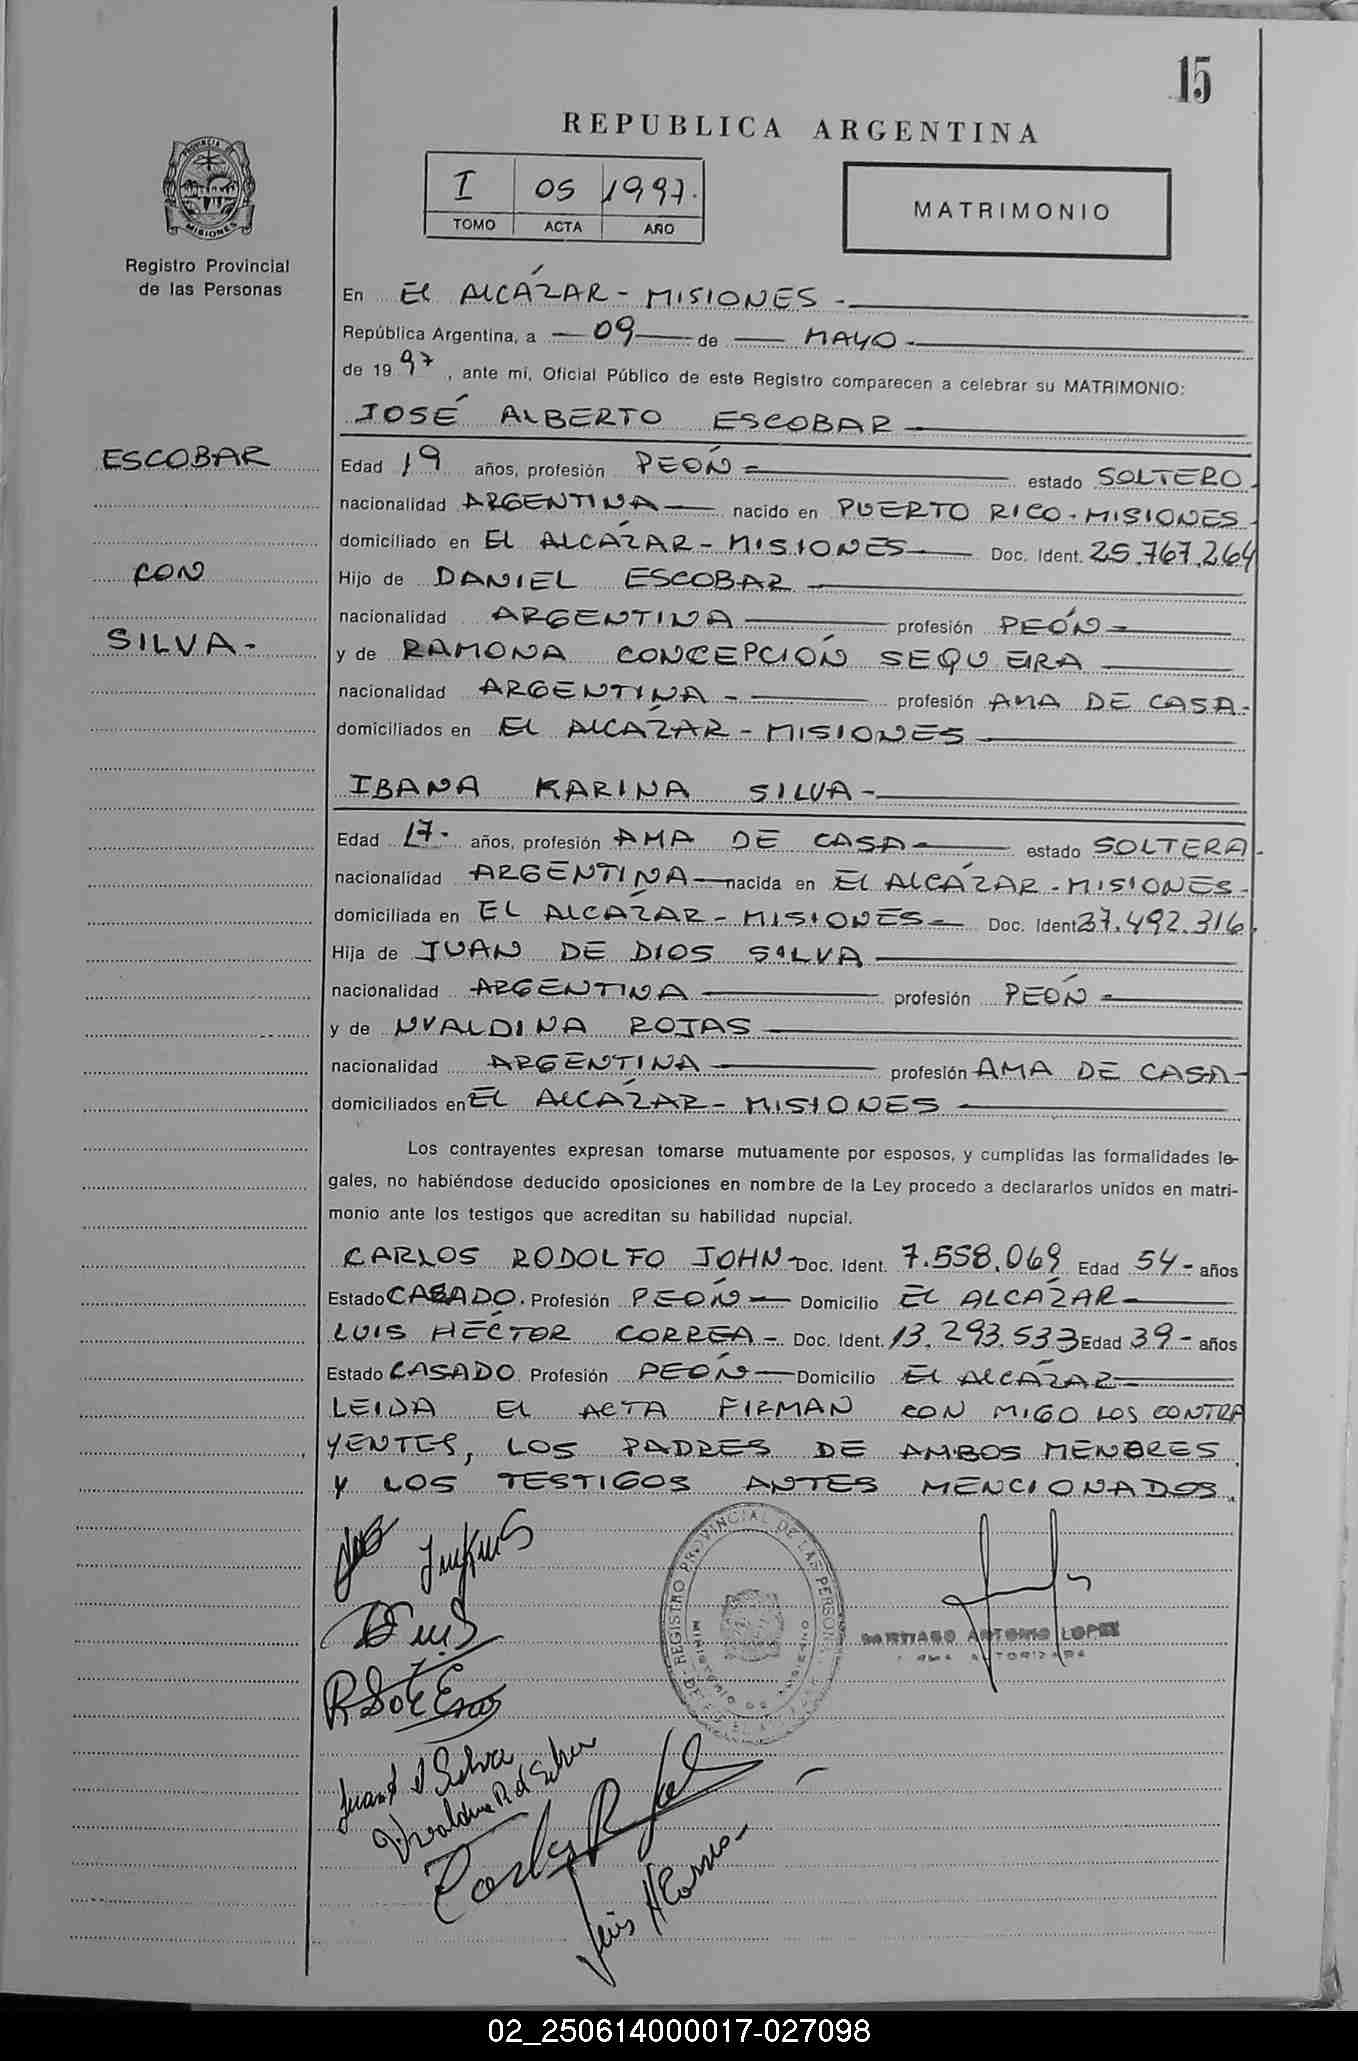 15
REPUBLICA ARGENTINA
I 05 1997.
TOMO ACTA AÑO
MATRIMONIO
PROVINCIA DE MISIONES
Registro Provincial
de las Personas
En EL ALCÁZAR - MISIONES -
República Argentina, a 09 de MAYO
de 1997, ante mí, Oficial Público de este Registro comparecen a celebrar su MATRIMONIO:
JOSÉ ALBERTO ESCOBAR
ESCOBAR
CON
SILVA-
Edad 19 años, profesión PEÓN estado SOLTERO
nacionalidad ARGENTINA nacido en PUERTO RICO - MISIONES
domiciliado en EL ALCÁZAR - MISIONES Doc. Ident. 25.767.264
Hijo de DANIEL ESCOBAR
nacionalidad ARGENTINA profesión PEÓN
y de RAMONA CONCEPCIÓN SEQUEIRA
nacionalidad ARGENTINA - profesión AMA DE CASA-
domiciliados en EL ALCÁZAR - MISIONES
IBANA KARINA SILVA-
Edad 17- años, profesión AMA DE CASA estado SOLTERA-
nacionalidad ARGENTINA nacida en EL ALCÁZAR - MISIONES-
domiciliada en EL ALCÁZAR - MISIONES Doc. Ident 37.492.316
Hija de JUAN DE DIOS SILVA
nacionalidad ARGENTINA profesión PEÓN
y de NVALDINA ROJAS
nacionalidad ARGENTINA profesión AMA DE CASA-
domiciliados en EL ALCÁZAR - MISIONES
Los contrayentes expresan tomarse mutuamente por esposos, y cumplidas las formalidades le-
gales, no habiéndose deducido oposiciones en nombre de la Ley procedo a declararlos unidos en matri-
monio ante los testigos que acreditan su habilidad nupcial.
CARLOS RODOLFO JOHN- Doc. Ident. 7.558.069 Edad 54- años
Estado CASADO. Profesión PEÓN Domicilio EL ALCÁZAR
LUIS HÉCTOR CORREA- Doc. Ident. 13.293.533 Edad 39- años
Estado CASADO Profesión PEÓN Domicilio EL ALCÁZAR
LEIDA EL ACTA FIRMAN CON MIGO LOS CONTRA
YENTES, LOS PADRES DE AMBOS MENORES
Y LOS TESTIGOS ANTES MENCIONADOS.
REGISTRO PROVINCIAL DE LAS PERSONAS
MINISTERIO DE GOBIERNO
SANTIAGO ANTONIO LOPEZ
FIRMA AUTORIZADA
Juan d Silva
Nvaldina R d Silva
Luis H Correa-
02_250614000017-027098